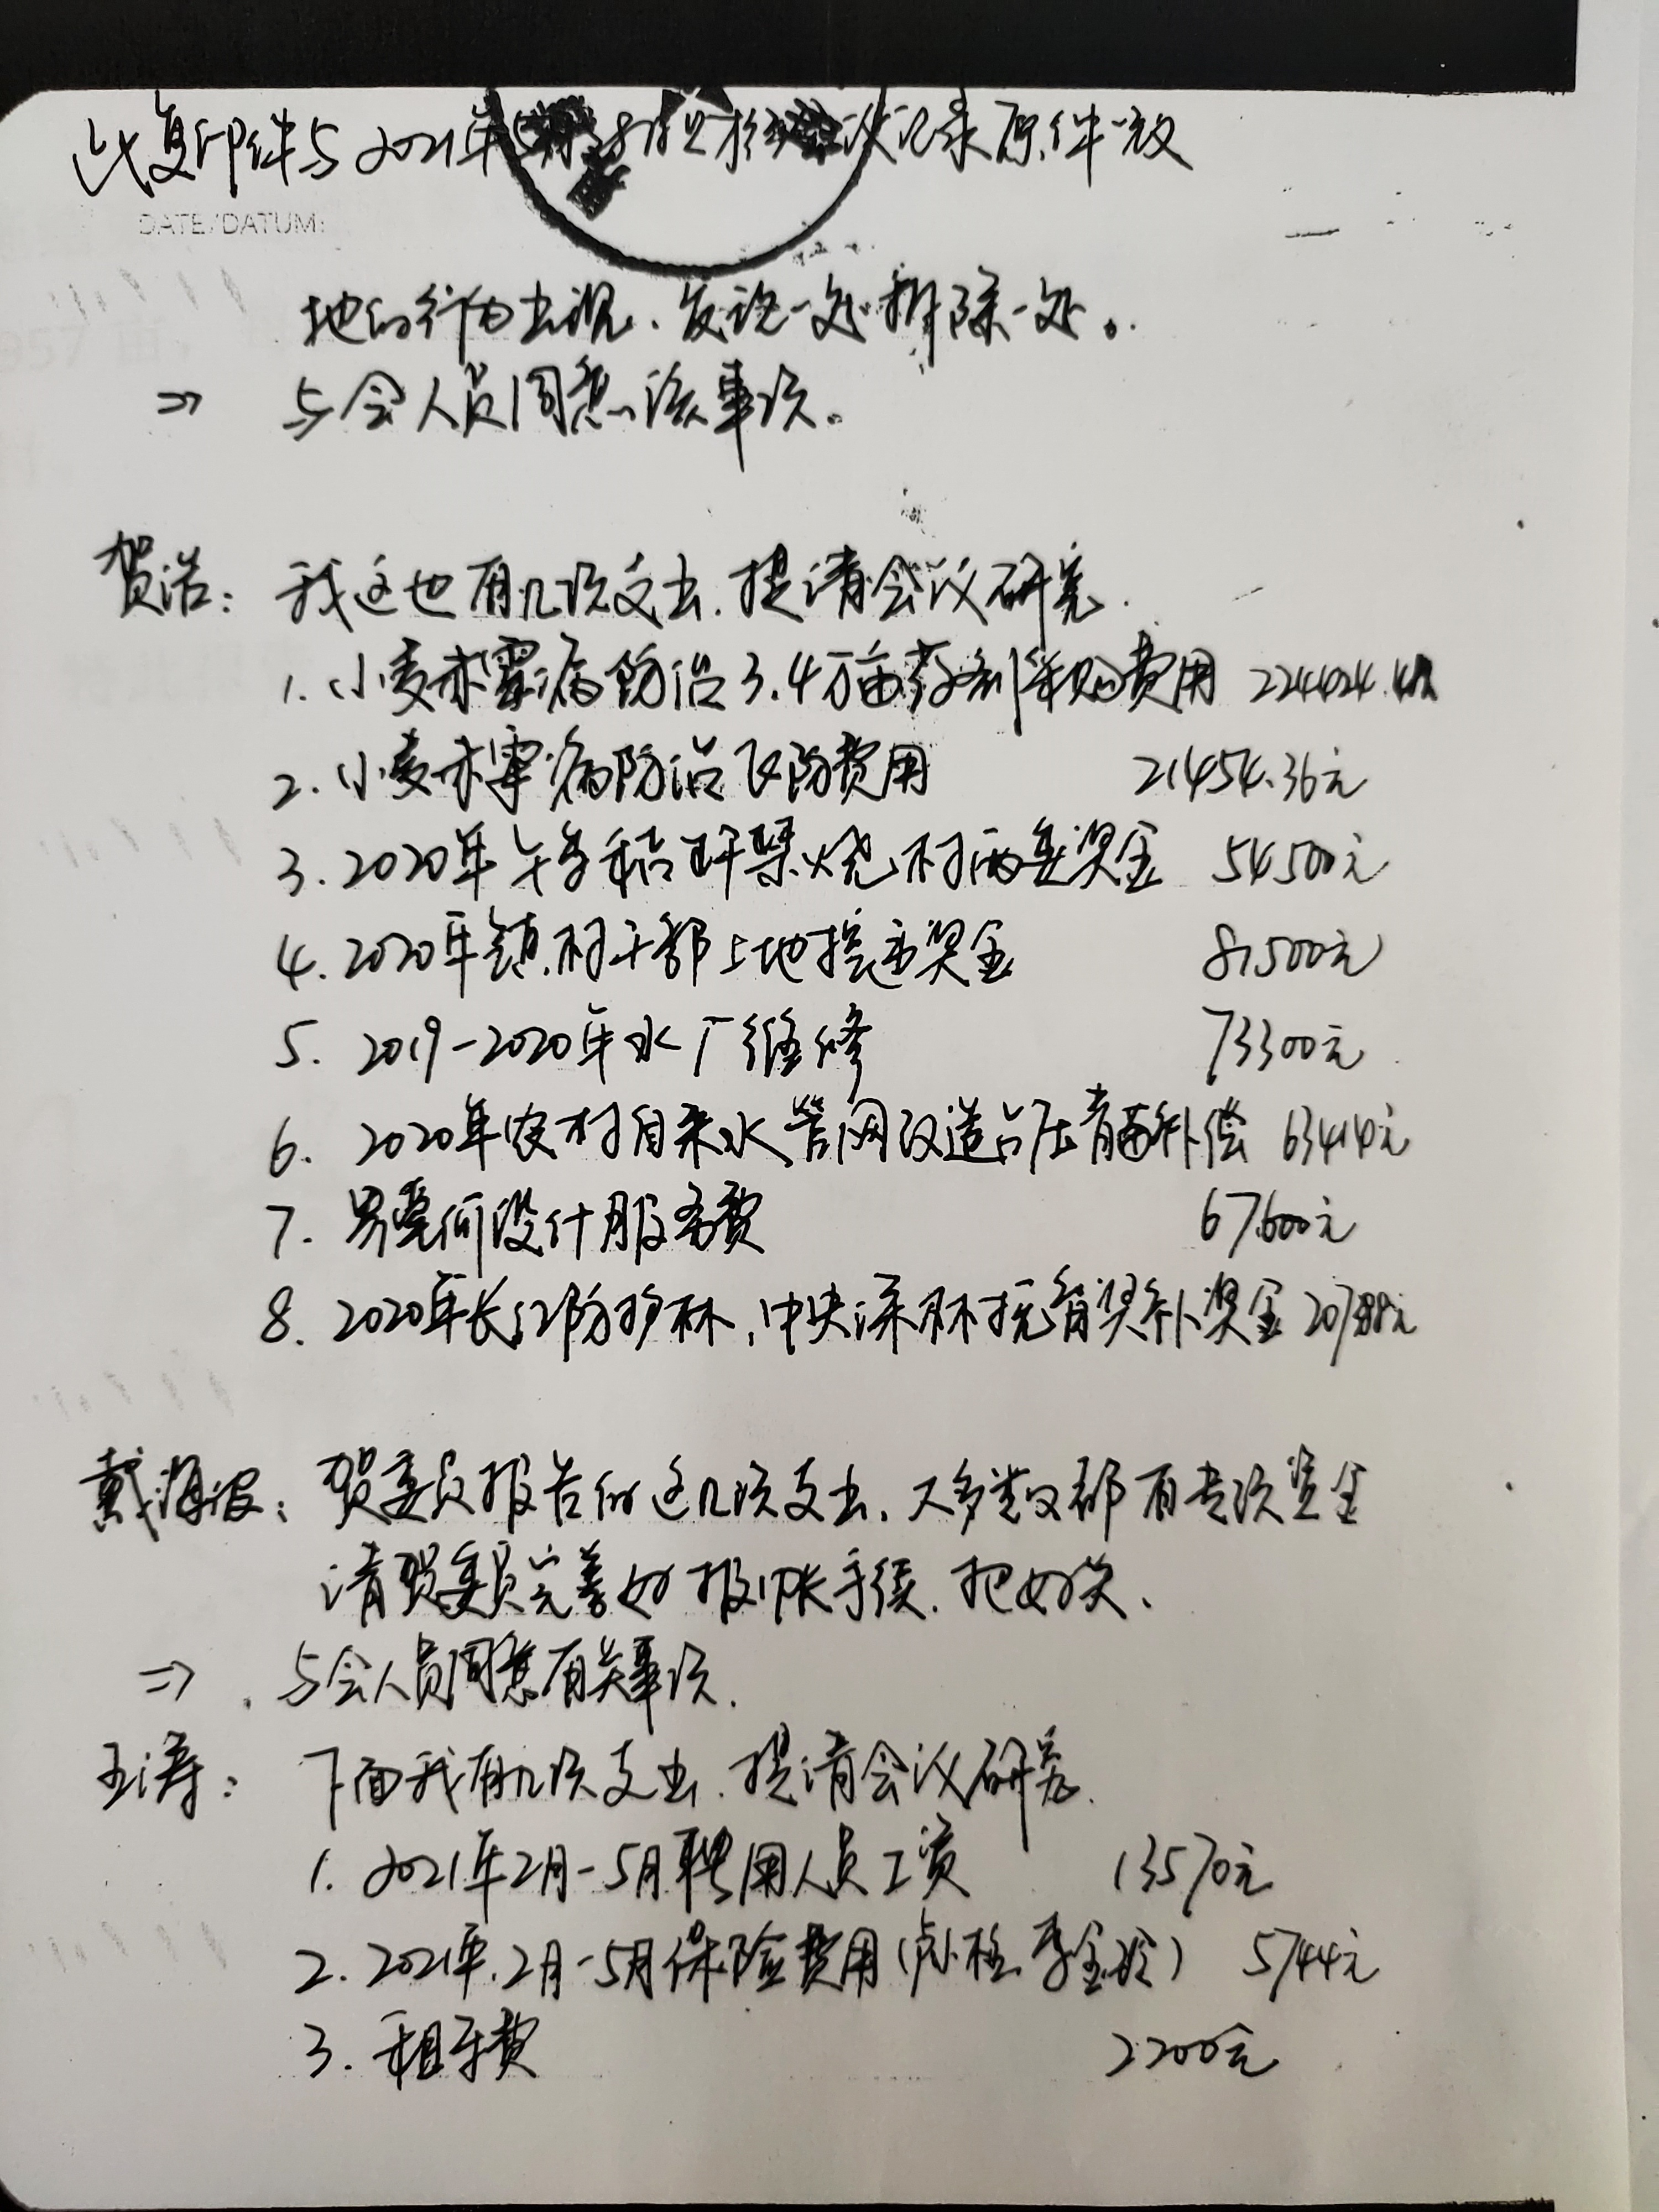 此复印件与2021年 议记录原件一致
DATE/DATUM:
地的行为出现、发现一处排除一处。
⇒ 与会人员同意该事项。
贺浩：我这也有几项支出，提请会议研究.
1. 小麦赤霉病防治3.4万亩药剂采购费用 224424.
2. 小麦赤霉病防治飞防费用 21454.36元
3. 2020年午季秸秆禁烧村两委奖金 54500元
4. 2020年镇、村干部土地 奖金 81500元
5. 2019-2020年水厂维修 73300元
6. 2020年农村自来水管网改造占压青苗补偿 63414元
7. 设计服务费 67600元
8. 2020年长江防护林，中央森林抚育奖补奖金 20788元
戴海波：贺委员报告的这几项支出，大多数都有专项资金
请贺委员完善好报账手续，把好关、
⇒ 与会人员同意有关事项.
王涛：下面我有几项支出，提请会议研究.
1. 2021年2月-5月聘用人员工资 13570元
2. 2021年2月-5月保险费用( 、李金玲) 5744元
3. 租车费 2200元